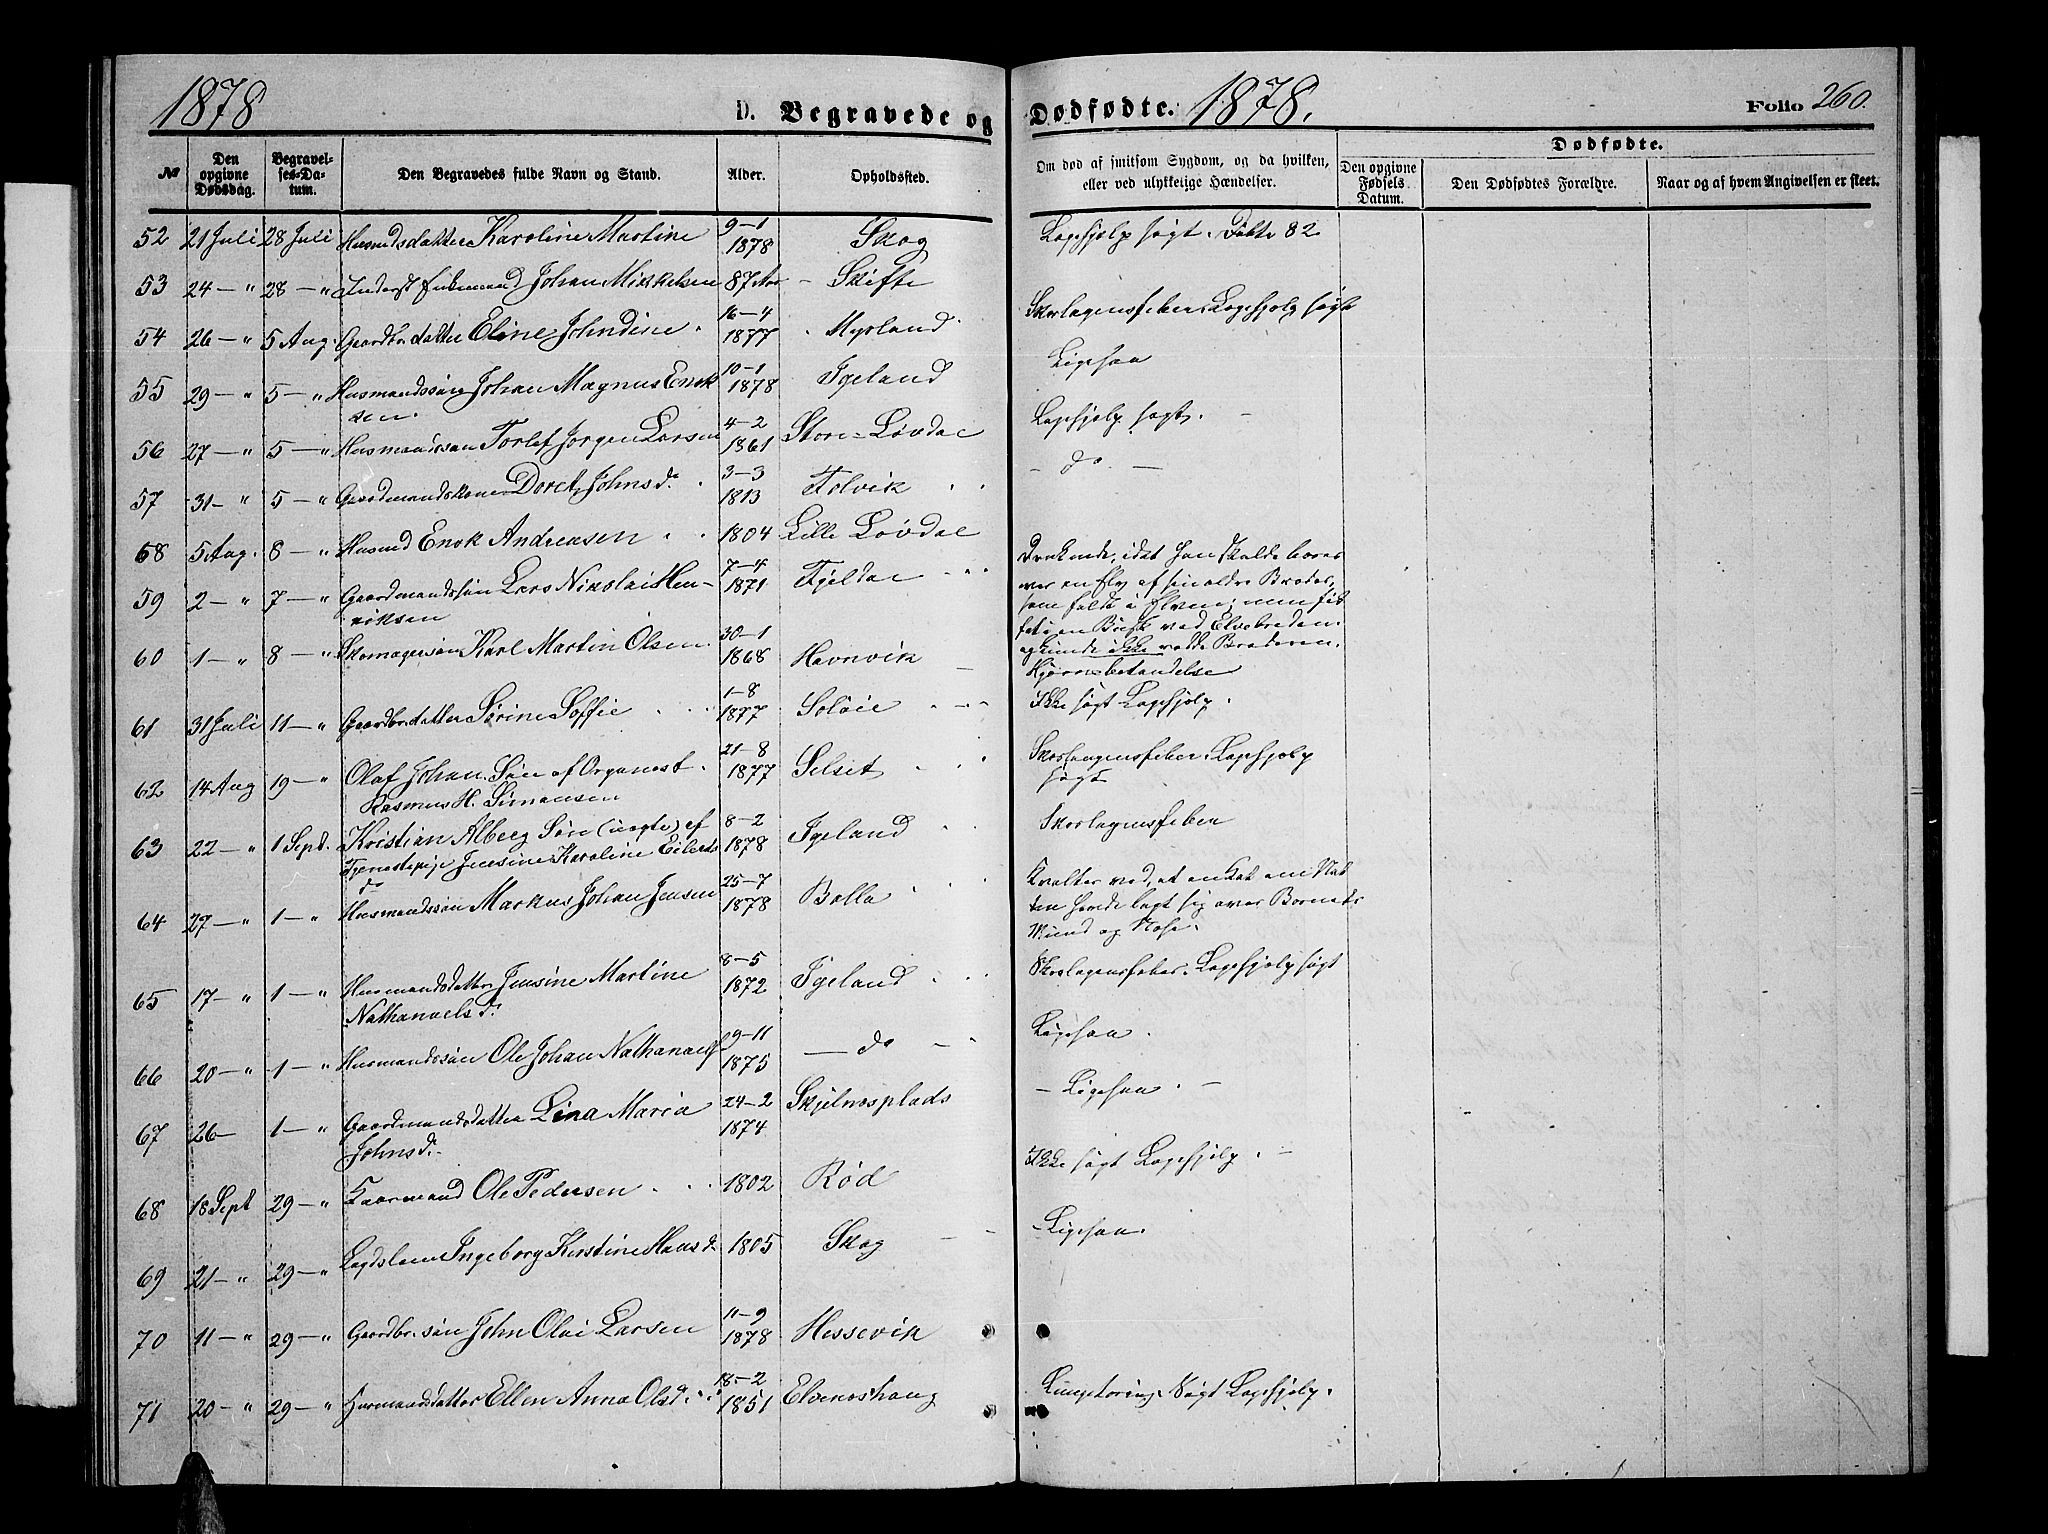 1878
D. Begravede og
Dødfødte. 1878.
Folio 260.
№
Den opgivne Dødsdag.
Begravelses-Datum.
Den Begravedes fulde Navn og Stand.
Alder.
Opholdssted.
Om død af smitsom Sygdom, og da hvilken, eller ved ulykkelige Hændelser.
Dødfødte.
Den opgivne Fødsels Datum.
Den Dødfødtes Forældre.
Naar og af hvem Angivelsen er skeet.
52 21 Juli 28 Juli Husmdsdatter Karoline Martine 9-1 1878 Skog Lægehjælp søgt. 82
53 24 — " 28 — " Inderst Enkemand Johan Mikkelsen 87 Aar Skifte
54 26 — " 5 Aug. Gaardbr.datter Eline Johndine 16-4 1877 Myrland Skarlagensfeber. Lægehjælp søgt
55 29 — " 5 — " Husmandssøn Johan Magnus Enok 10-1 1878 Igeland Ligesaa
sen.
56 27 — " 5 — " Husmandssøn Torlef Jørgen Larsen 4-2 1861 Store-Løvdal Lægehjælp søgt.
57 31 — " 5 — " Gaardmandskone Doret Johnsd. 3-3 1813 Tolvik — do. —
58 5 Aug. 8 — " Husmd Enok Andreasen 1804 Lille Løvdal
59 2 — " 7 — " Gaardmandssøn Lars Nikolai Hen- 7-4 1871 Fjeldal Druknede, idet han skulde bæres
riksen
over en Elv af sin ældre Broder,
som faldt i Elven; men fik
fat i en Busk ved Elvebredden.
og kunde ikke redde Broderen.
60 1 — " 8 — " Skomagersøn Karl Martin Olsen 30-1 1868 Havnvik Hjernebetændelse
61 31 Juli 11 — " Gaardbr.datter Sørine Soffie 1-8 1877 Soløie Ikke søgt Lægehjælp.
62 14 Aug 19 — " Olaf Johan. Søn af Organist 21-8 1877 Selset Skarlagensfeber. Lægehjælp
Rasmus H. Simonsen
søgt
63 22 — " 1 Sept. Kristian Alberg Søn (uægte) af 8-2 1878 Igeland Skarlagensfeber
Tjenestepige Jensine Karoline Eilerts
d.
64 27 — " 1 — " Husmandssøn Markus Johan Jensen 25-7 1878 Balla Kvaltes ved, at en Kat om Nat
ten havde lagt sig over Barnets
Mund og Næse.
65 17 — " 1 — " Husmandsdatter Jensine Martine 8-5 1872 Igeland Skarlagensfeber. Lægehjælp søgt
Nathanaels d.
66 20 — " 1 — " Husmandssøn Ole Johan Nathanaels 29-11 1875 — do — Ligesaa.
67 26 — 1 — " Gaardmandsdatter Lina Maria 24-2 1874 Skjelnesplads — Ligesaa. —
Johnsd.
68 18 Sept 29 — " Kaarmand Ole Pedersen 1802 Rød Ikke søgt Lægehjælp. —
69 21 — " 29 — " Lægdslem Ingeborg Kirstine Hans d. 1805 Skog Ligesaa.
70 11 — " 29 — " Gaardbr.søn John Olai Larsen 11-9 1878 Hessevik
71 20 — " 29 — " Husmandsdatter Ellen Anna Olsd. 18-2 1851 Elveneshaug Lungetæring. Søgt Lægehjælp.